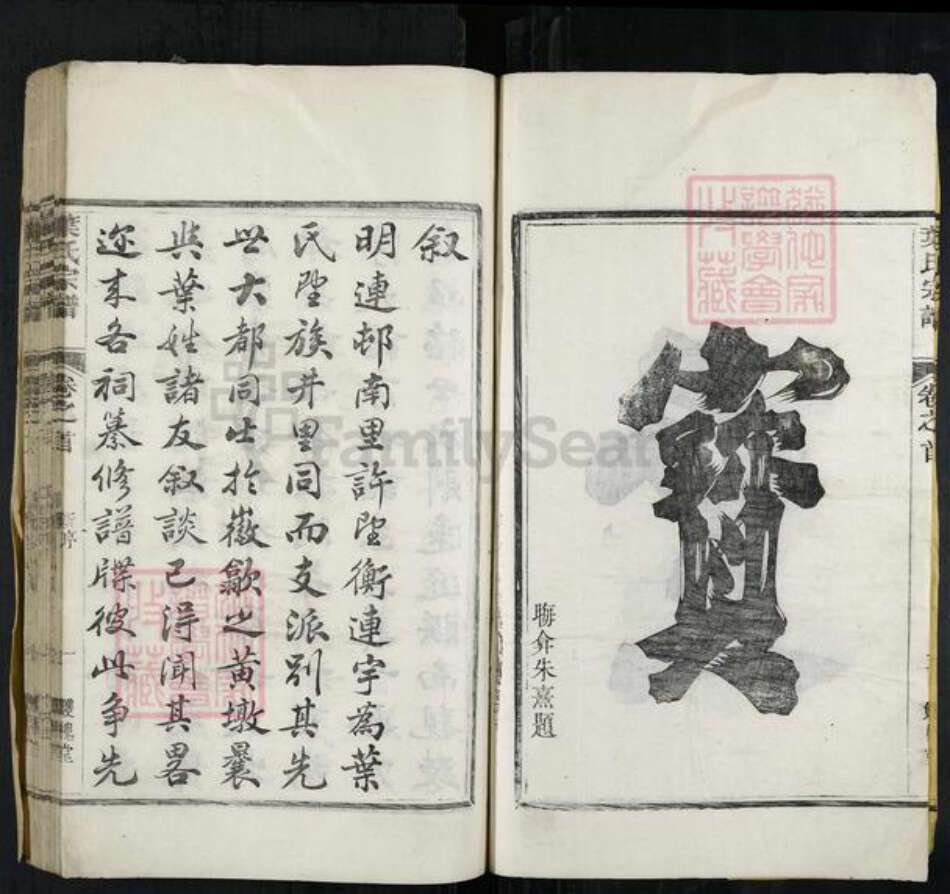 葉氏宗譜
卷之首
賢
晦弅朱熹題
叙
明連邨南里許望衡連宇為葉
氏望族井里同而支派別其先
世大都同出於徽歙之黄墩曩
與葉姓諸友叙談已得闻其畧
迩来各祠纂修譜牒彼此争先
葉氏宗譜
卷之首
FamilySearch